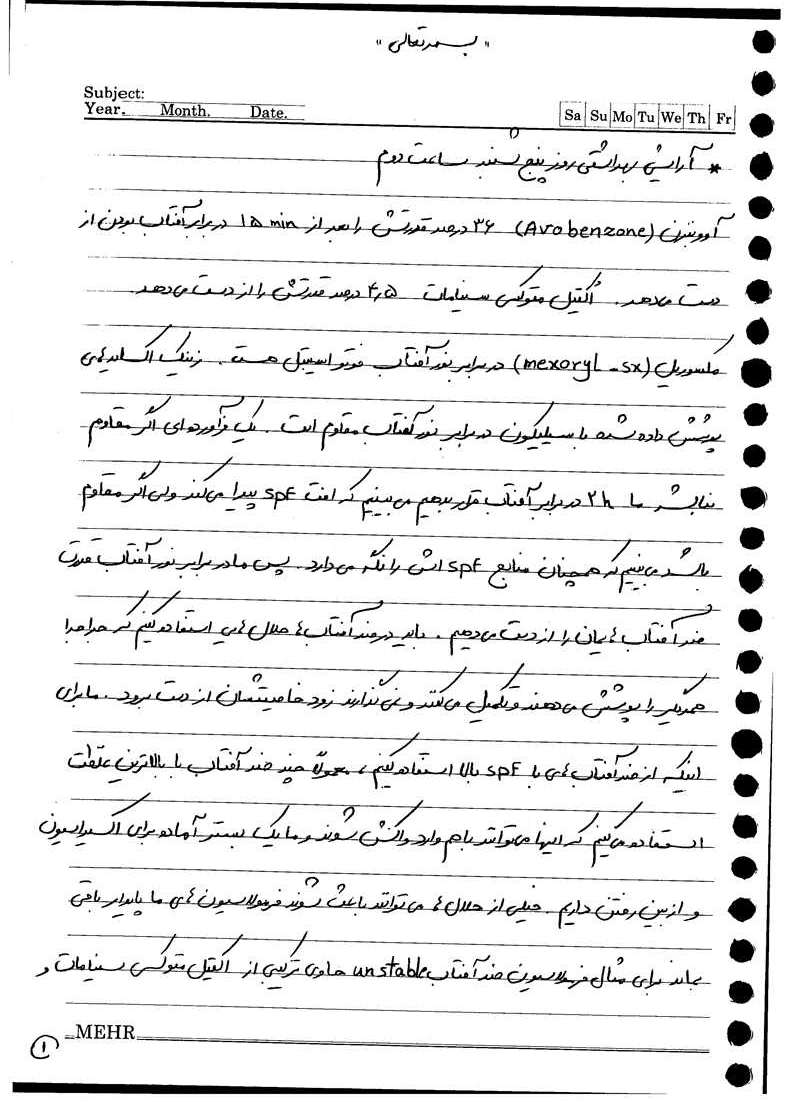 "بسمه تعالی"
Subject:
Year. Month. Date.
Sa Su Mo Tu We Th Fr
* آرایشی بهداشتی روز پنج شنبه ساعت دوم
آووبنزن (Avobenzone) ۳۶ درصد قدرتش را بعد از ۱۵ min در برابر آفتاب بودن از
دست می‌دهد. اُکتیل متوکسی سینامات ۴,۵ درصد قدرتش را از دست می‌دهد.
مکسوریل (mexoryl - sx) در برابر نور آفتاب فوتو استیبل هست. زینک اکسایدهای
پوشش داده شده با سیلیکون در برابر نور آفتاب مقاوم است. یک فرآورده‌ای اگر مقاوم
نباشد ما ۲h در برابر آفتاب قرار بدهیم می‌بینیم که افت SPF پیدا می‌کند ولی اگر مقاوم
باشد می‌بینیم که همچنان منابع SPF اش را نگه می‌دارد. پس ما در برابر نور آفتاب قدرت
ضد آفتاب هایمان را از دست می‌دهیم. باید در ضد آفتاب ها حلال هایی استفاده کنیم که جداجدا
همدیگر را پوشش می‌دهند و تکمیل می‌کنند و نمی‌گذارند زود خاصیتشان از دست برود. ما برای
اینکه از ضد آفتاب های با SPF بالا استفاده کنیم، معمولاً چند ضد آفتاب با بالاترین غلظت
استفاده می‌کنیم که اینها می‌توانند باهم وارد واکنش شوند و ما یک بستر آماده برای اکسیداسیون
و از بین رفتن داریم. خیلی از حلال ها می‌توانند باعث شوند فرمولاسیون های ما پایدار باقی
بماند برای مثال فرمولاسیون ضد آفتاب unstable حاوی ترکیبی از اکتیل متوکسی سینامات و
MEHR
۱